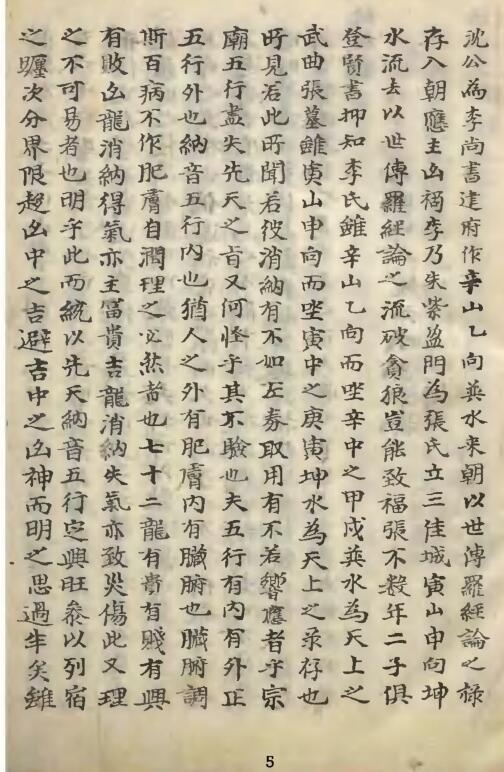 沈公為李尚書建府作辛山乙向巽水来朝以世傳羅經論之祿
存入朝應主凶禍李乃朱紫盈門為張氏立三佳城寅山申向坤
水流去以世傳羅經論之流破貪狼豈能致福張不数年二子俱
登賢書抑知李氏雖辛山乙向而坐辛中之甲戌巽水為天上之
武曲張墓雖寅山申向而坐寅中之庚寅坤水為天上之祿存也
所見若此所聞若彼消納有不如左券取用有不若響應者乎宗
廟五行盡失先天之旨又何怪乎其不驗也夫五行有内有外正
五行外也納音五行内也猶人之外有肥膚内有臟腑也臟腑調
斯百病不作肥膚自潤理之必然者也七十二龍有貴有賤有興
有敗凶龍消納得氣亦主富貴吉龍消納失氣亦致災傷此又理
之不可易者也明乎此而統以先天納音五行定興旺叅以列宿
之躔次分界限趨凶中之吉避吉中之凶神而明之思過半矣雖
5